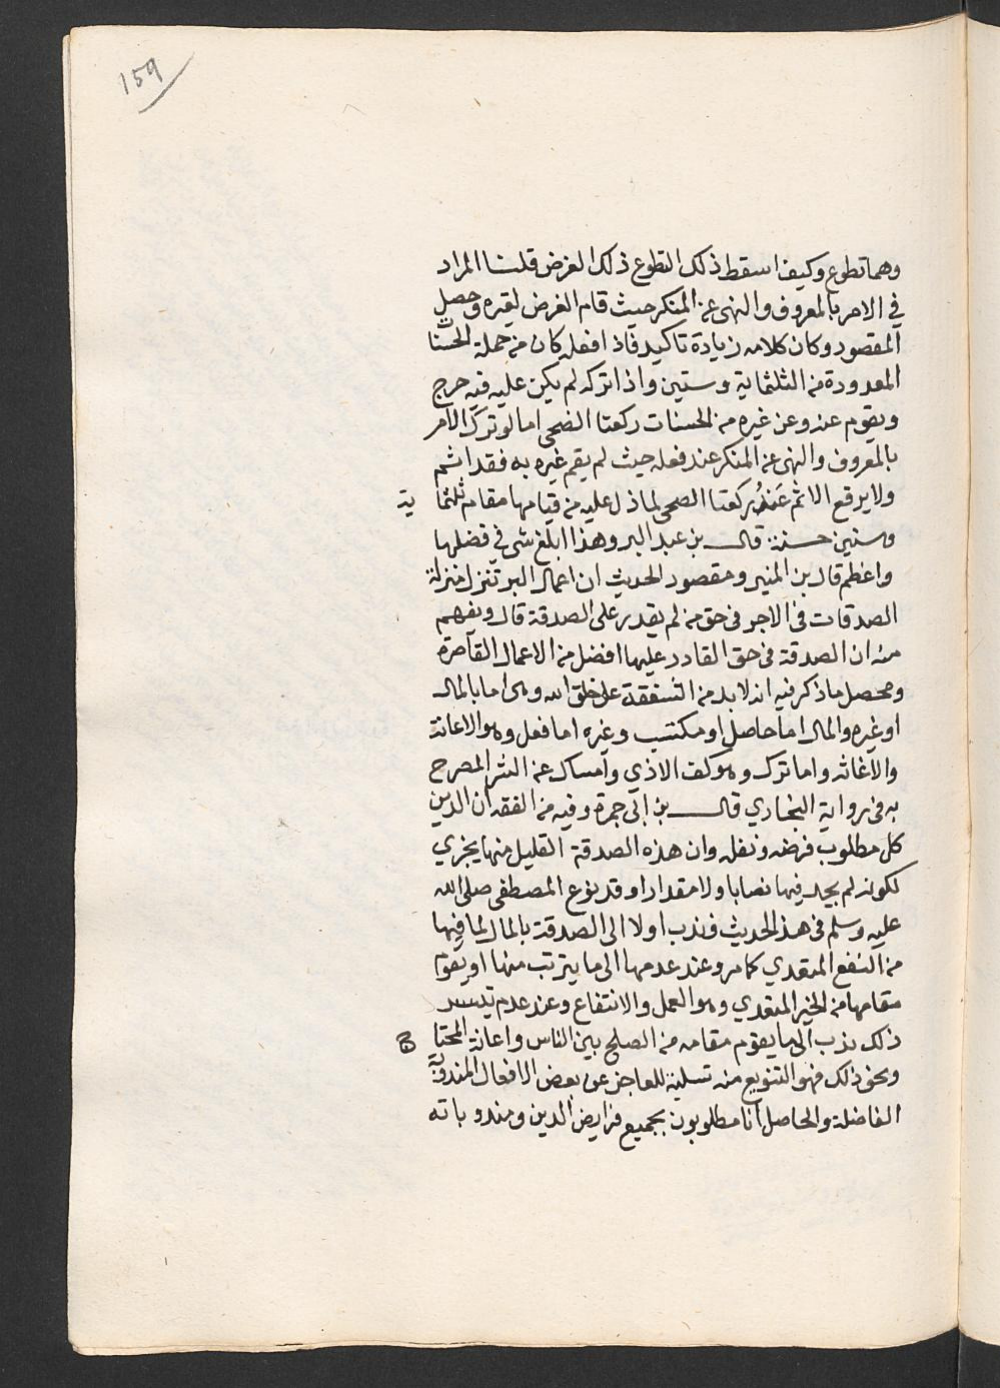 159
وهما تطوع وكيف اسقط ذلك التطوع ذلك الفرض قلنا المراد
في الامر بالمعروف والنهى عن المنكر حيث قام الفرض لغيره وحصل
المقصود وكان كلامه زيادة تاكيد فاذا فعله كان من جملة الحسنا
المعدودة من الثلثماية وستين واذا تركه لم يكن عليه فيه حرج
ويقوم عنه وعن غيره من الحسنات ركعتا الضحى اما لو ترك الامر
بالمعروف والنهى عن المنكر عند فعله حيث لم يقم غيره به فقد اثم
ولا يرفع الاثم عنه ركعتا الضحى لما ذل عليه من قيامها مقام ثلثما ية
وستين حسنة قال بن عبد البر وهذا ابلغ شي في فضلها
واعظم قال بن المنير ومقصود الحديث ان اعمال البر تنزل منزلة
الصدقات في الاجر في حق من لم يقدر على الصدقة قال ويفهم
منه ان الصدقة في حق القادر عليها افضل من الاعمال القاصرة
ومحصل ما ذكر فيه انه لا بد من الشفقة على خلق الله وهى اما بالمال
او غيره والمال اما حاصل او مكتسب وغيره اما فعل وهو الاعانة
والاغاثه واما ترك وهو كف الاذي وامساك عن الشر المصرح
به في رواية البخاري قال بن ابى جمرة وفيه من الفقه ان الدين
كل مطلوب فرضه ونفله وان هذه الصدقة القليل منها يجزي
لكونه لم يحد فيها نصابا ولا مقدارا وقد نوع المصطفى صلى الله
عليه وسلم في هذا الحديث فندب اولا الى الصدقة بالمال لما فيها
من النفع المتعدي كما مر وعند عدمها الى ما يترتب منها او يقوم
مقامها من الخير المتعدي وهو العمل والانتفاع وعند عدم تيسر
ذلك ندب الى ما يقوم مقامه من الصلح بين الناس واعانة المحتا ج
ونحو ذلك فهو التنويع منه تسلية للعاجز عن بعض الافعال المندوبة
الفاضلة والحاصل انا مطلوبون بجميع فرايض الدين ومندوباته